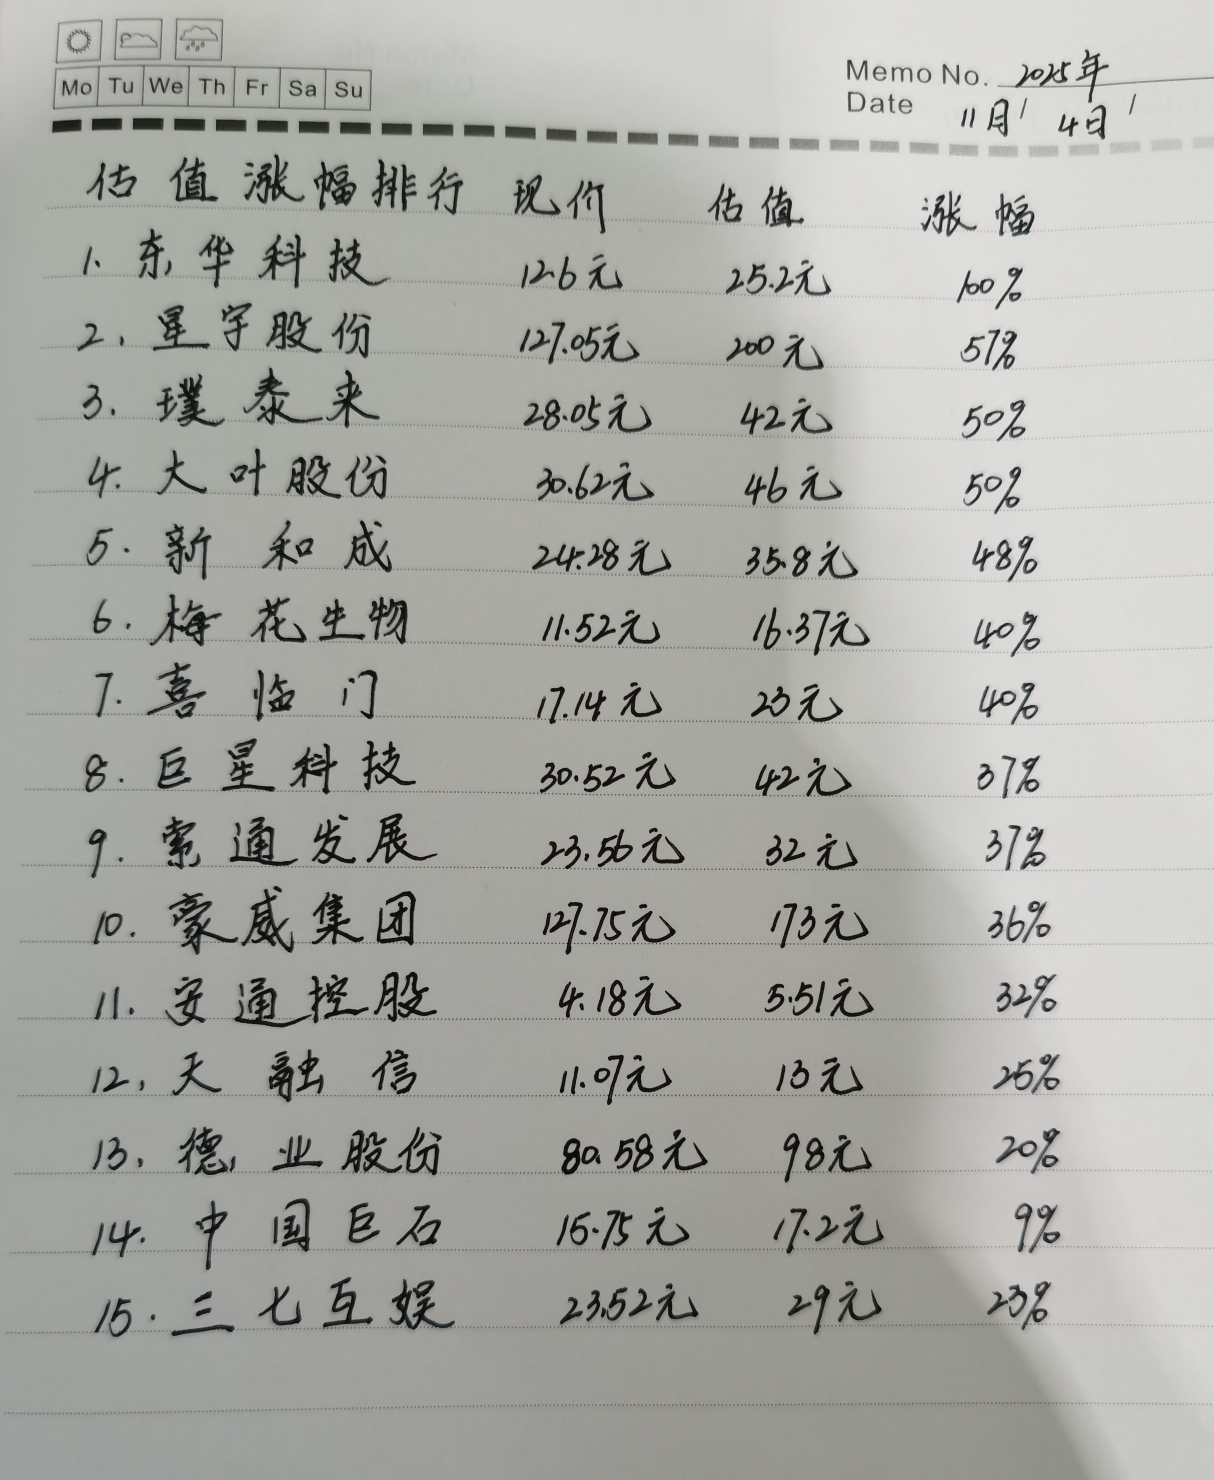 Mo Tu We Th Fr Sa Su
Memo No. 2025年
Date 11月 4日
估值涨幅排行 现价 估值 涨幅
1. 东华科技 12.6元 25.2元 100%
2. 星宇股份 127.05元 200元 57%
3. 璞泰来 28.05元 42元 50%
4. 大叶股份 30.62元 46元 50%
5. 新和成 24.28元 35.8元 48%
6. 梅花生物 11.52元 16.37元 40%
7. 喜临门 17.14元 23元 40%
8. 巨星科技 30.52元 42元 37%
9. 索通发展 23.56元 32元 37%
10. 豪威集团 127.75元 173元 36%
11. 安通控股 4.18元 5.51元 32%
12. 天融信 11.07元 13元 25%
13. 德业股份 80.58元 98元 20%
14. 中国巨石 15.75元 17.2元 9%
15. 三七互娱 23.52元 29元 23%